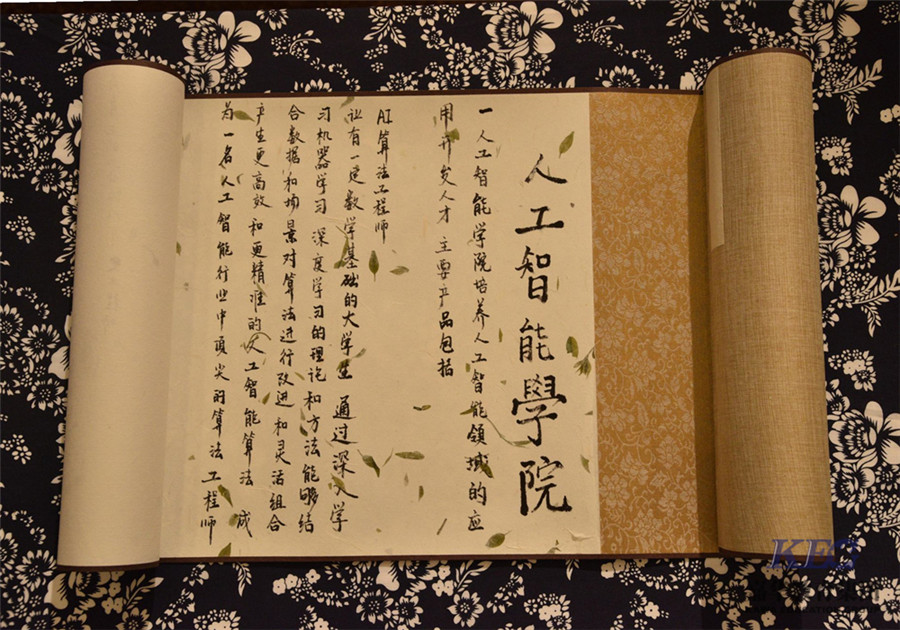 人工智能學院
一人工智能学院培养人工智能领域的应
用开发人才 主要产品包括
AI算法工程师
让有一定数学基础的大学生 通过深入学
习机器学习 深度学习的理论和方法能够结
合数据和场景对算法进行改进和灵活组合
产生更高效和更精准的人工智能算法 成
为一名人工智能行业中顶尖的算法工程师